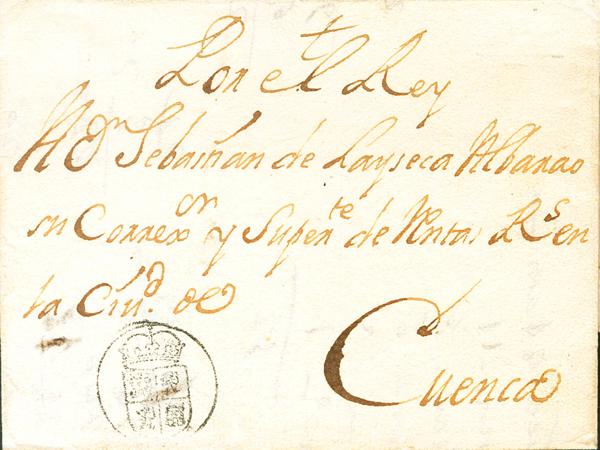 Por el Rey
A Dn Sebastian de Layseca Albarao
su Correxor y Superte de Rentas Rs en
la Ciud. de
Cuenca